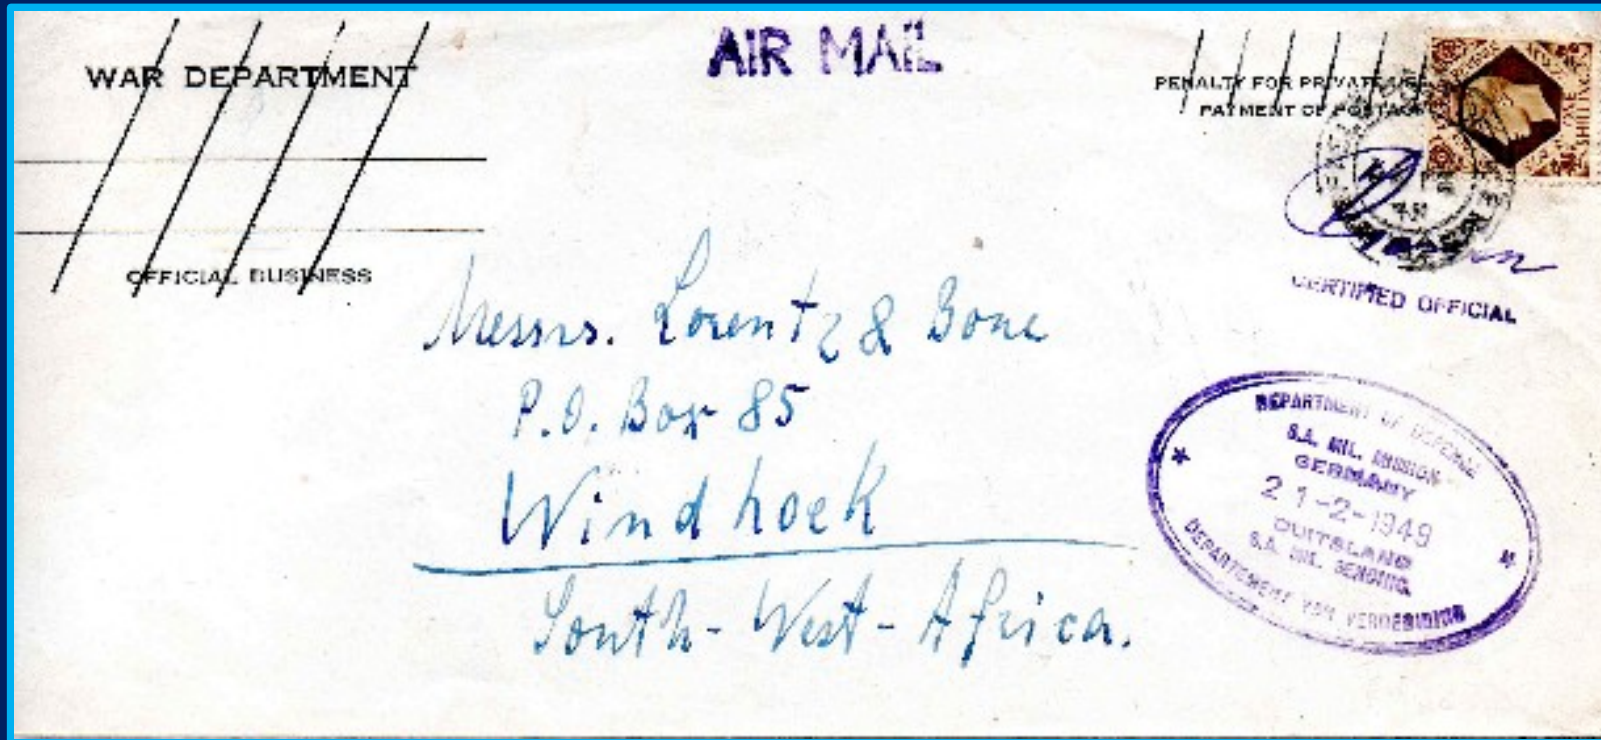 WAR DEPARTMENT
OFFICIAL BUSINESS
AIR MAIL
PENALTY FOR PRIVATE
PAYMENT OF POSTAGE
ONE SHILLING
CERTIFIED OFFICIAL
Messrs. Lorentz & Bone
P.O. Box 85
Windhoek
South-West-Africa.
DEPARTMENT OF DEFENCE
S.A. MIL. MISSION
GERMANY
21-2-1949
DUITSLAND
S.A. MIL. SENDING.
DEPARTEMENT VAN VERDEDIGING